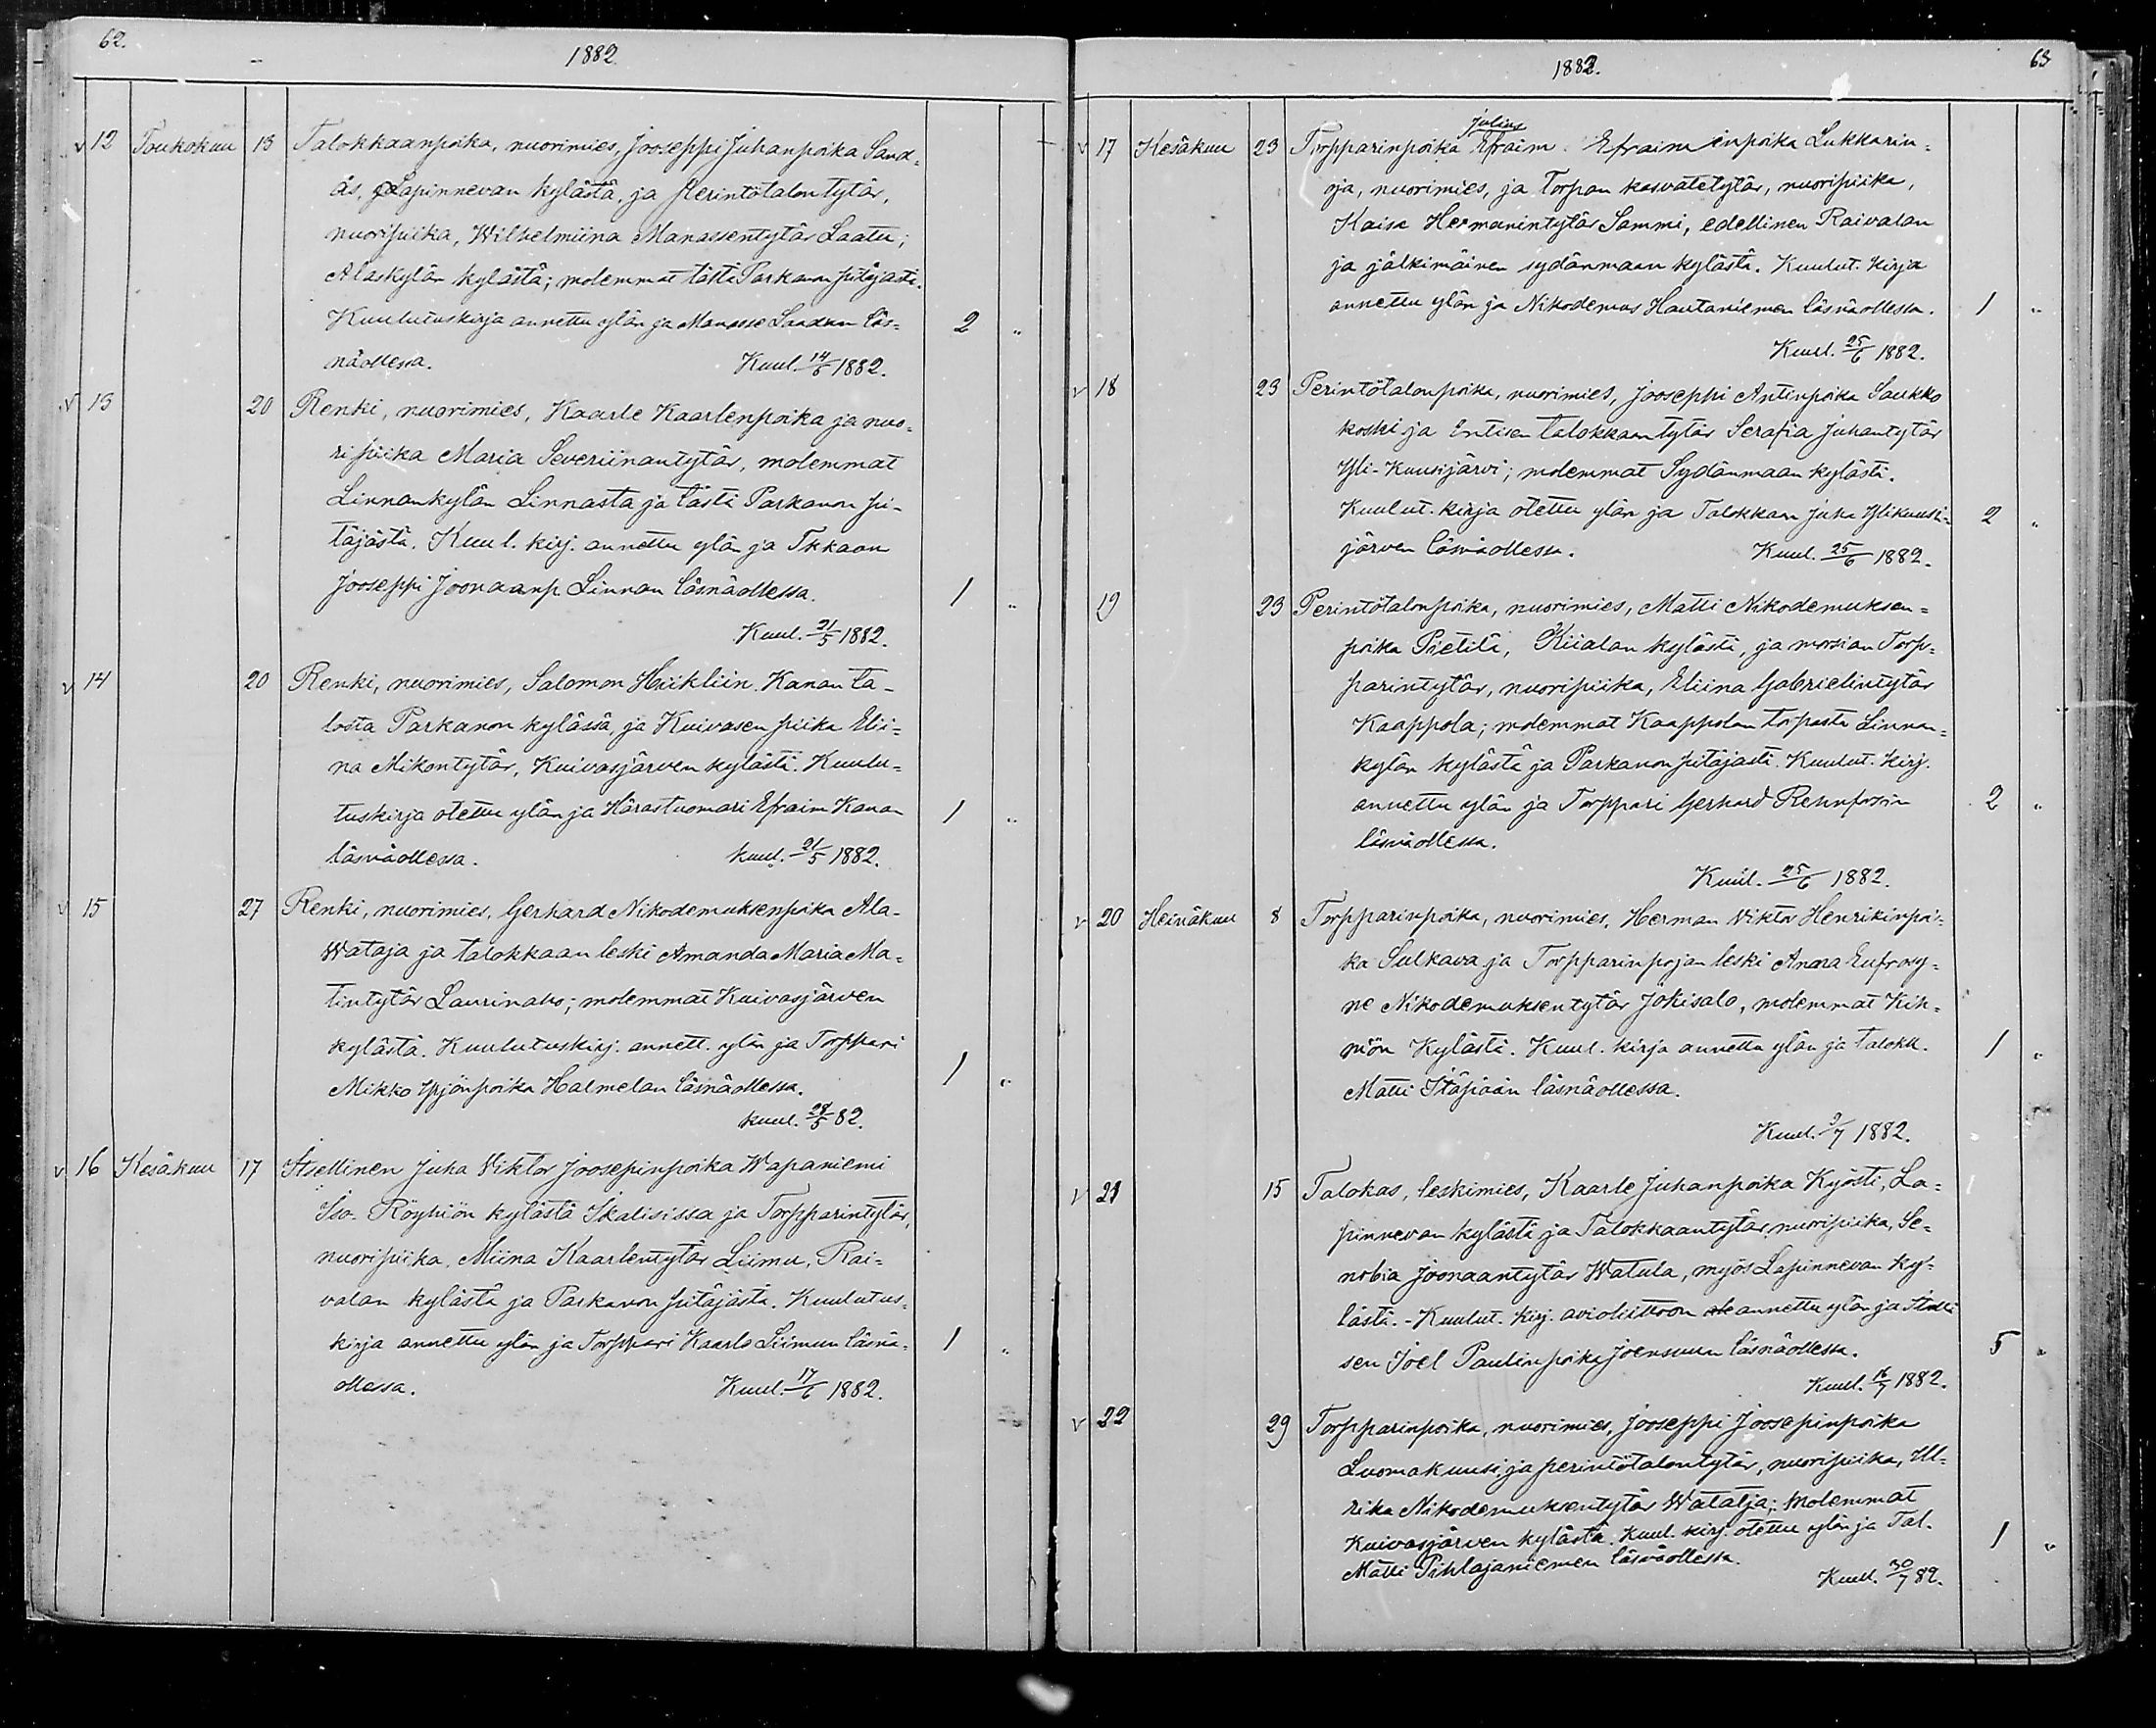 62.
1882
v 12 Toukokuu 13 Talokkaanpoika, nuorimies, Jooseppi Juhanpoika Sand-
ås, Lapinnevan kylästä, ja Perintötalon tytär,
nuoripiika, Wilhelmiina Manassentytär Laatu;
Alaskylän kylästä; molemmat tästä Parkanon pitäjästä.
Kuulutuskirja annettu ylän ja Manasse Laadun läs= 2 "
näollessa. Kuul. 14/5 1882.
v 13 20 Renki, nuorimies, Kaarle Kaarlenpoika ja nuo-
ripiika Maria Severiinantytär, molemmat
Linnankylän Linnasta ja tästä Parkanon pi-
täjästä. Kuul. kirj. annettu ylän ja Tkkaan
Jooseppi Joonaanp Linnan läsnäollessa. 1 "
Kuul. 21/5 1882.
v 14 20 Renki, nuorimies, Salomon Hiikliin Kanan ta-
losta Parkanon kylässä, ja Kuivasen piika Elii=
na Mikontytär, Kuivasjärven kylästä. Kuulu=
tuskirja otettu ylän ja Härastuomari Efraim Kanan 1 "
läsnäollessa. kuul. 21/5 1882.
v 15 27 Renki, nuorimies, Gerhard Nikodemuksenpoika Ala-
Wataja ja talokkaan leski Amanda Maria Ma=
tintytär Laurinaho; molemmat Kuivasjärven
kylästä. Kuulutuskirj. annett. ylän ja Torppari
Mikko Yrjönpoika Halmelan läsnäollessa. 1 "
kuul. 28/5 82.
v 16 Kesäkuu 17 Itsellinen Juha Viktor Joosepinpoika Wapaniemi
Iso-Röyhiön kylästä Ikalisissa ja Torpparintytär,
nuoripiika, Miina Kaarlentytär Liimu, Rai=
valan kylästä ja Parkanon pitäjästä. Kuulutus-
kirja annettu ylän ja Torppari Kaarlo Liimun läsnä- 1 "
ollessa. Kuul. 17/6 1882.
63
1882.
Julius
v 17 Kesäkuu 23 Torpparinpoika Efraim Efraiminpoika Lukkarin-
oja, nuorimies, ja Torpan kasvatetytär, nuoripiika,
Kaisa Hermanintytär Sammi, edellinen Raivalan
ja jälkimäinen sydänmaan kylästä. Kuulut. Kirja
annettu ylän ja Nikodemus Hautaniemen läsnäollessa. 1 "
Kuul. 25/6 1882.
v 18 23 Perintötalonpoika, nuorimies, Jooseppi Antinpoika Saukko
koski ja Entisen talokkaan tytär Serafia Juhantytär
Yli-Kuusijärvi; molemmat Sydänmaan kylästä.
Kuulut. kirja otettu ylän ja Talokkaan Juha Ylikuusi- 2 "
järven läsnäollessa. Kuul. 25/6 1882.
19 23 Perintötalonpoika, nuorimies, Matti Nikodemuksen=
poika Pietilä, Kiialan kylästä, ja morsian Torp=
parintytär, nuoripiika, Eliina Gabrielintytär
Kaappola; molemmat Kaappolan torpasta Linnan=
kylän kylästä ja Parkanon pitäjästä. Kuulut. kirj.
annettu ylän ja Torppari Gerhard 2 "
läsnäollessa.
Kuul. 25/6 1882.
v 20 Heinäkuu 8 Torpparinpoika, nuorimies, Herman Viktor Henrikinpoi-
ka Sulkava ja Torpparinpojan leski Anna Eufrosy=
ne Nikodemuksentytär Jokisalo, molemmat Kih=
niön Kylästä. Kuul. kirja annettu ylän ja talokk. 1 "
Matti Itäpään läsnäollessa.
Kuul. 9/7 1882.
v 21 15 Talokas, leskimies, Kaarle Juhanpoika Kyösti, La=
pinnevan kylästä ja Talokkaantytär nuoripiika, Se=
nobia Joonaantytär Watula, myös Lapinnevan ky-
lästä. - Kuulut. kirj. avioliittoon annettu ylän ja Itselli
sen Joel Paulinpoika Joensuun läsnäollessa. 5 "
Kuul. 16/7 1882.
v 22 29 Torpparinpoika, nuorimies, Jooseppi Joosepinpoika
Luomakuusi, ja perintötalontytär, nuoripiika, Ul-
rika Nikodemuksentytär Watatja; Molemmat
Kuivasjärven kylästä. Kuul. kirj. otettu ylän ja Tal. 1 "
Matti Pihlajaniemen läsnäollessa.
Kuul. 30/7 82.